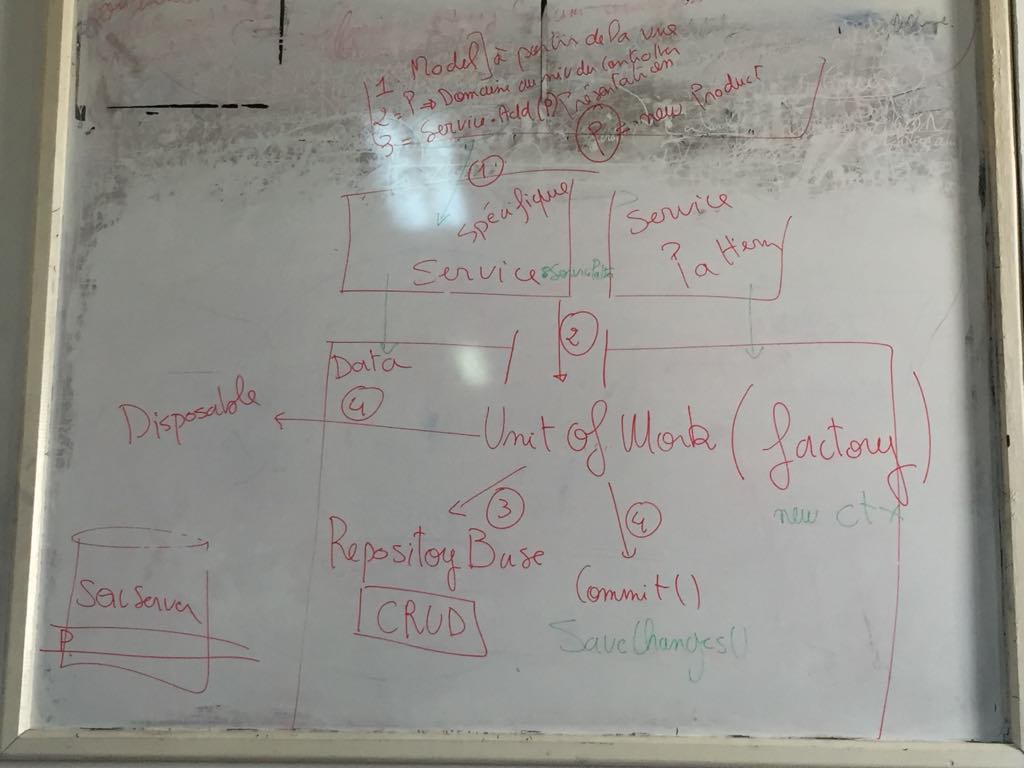 1 = Model] à partir de la vue
2 = P => Domaine au niv du controller
3 = Service.Add(P) Présentation
P = new Product
1
Spécifique
Service
Service
Pattern
2
Data
4
Disposable
Unit Of Work (factory)
new ctx
3
4
Repository Base
CRUD
Commit()
SaveChanges()
SQLServer
P